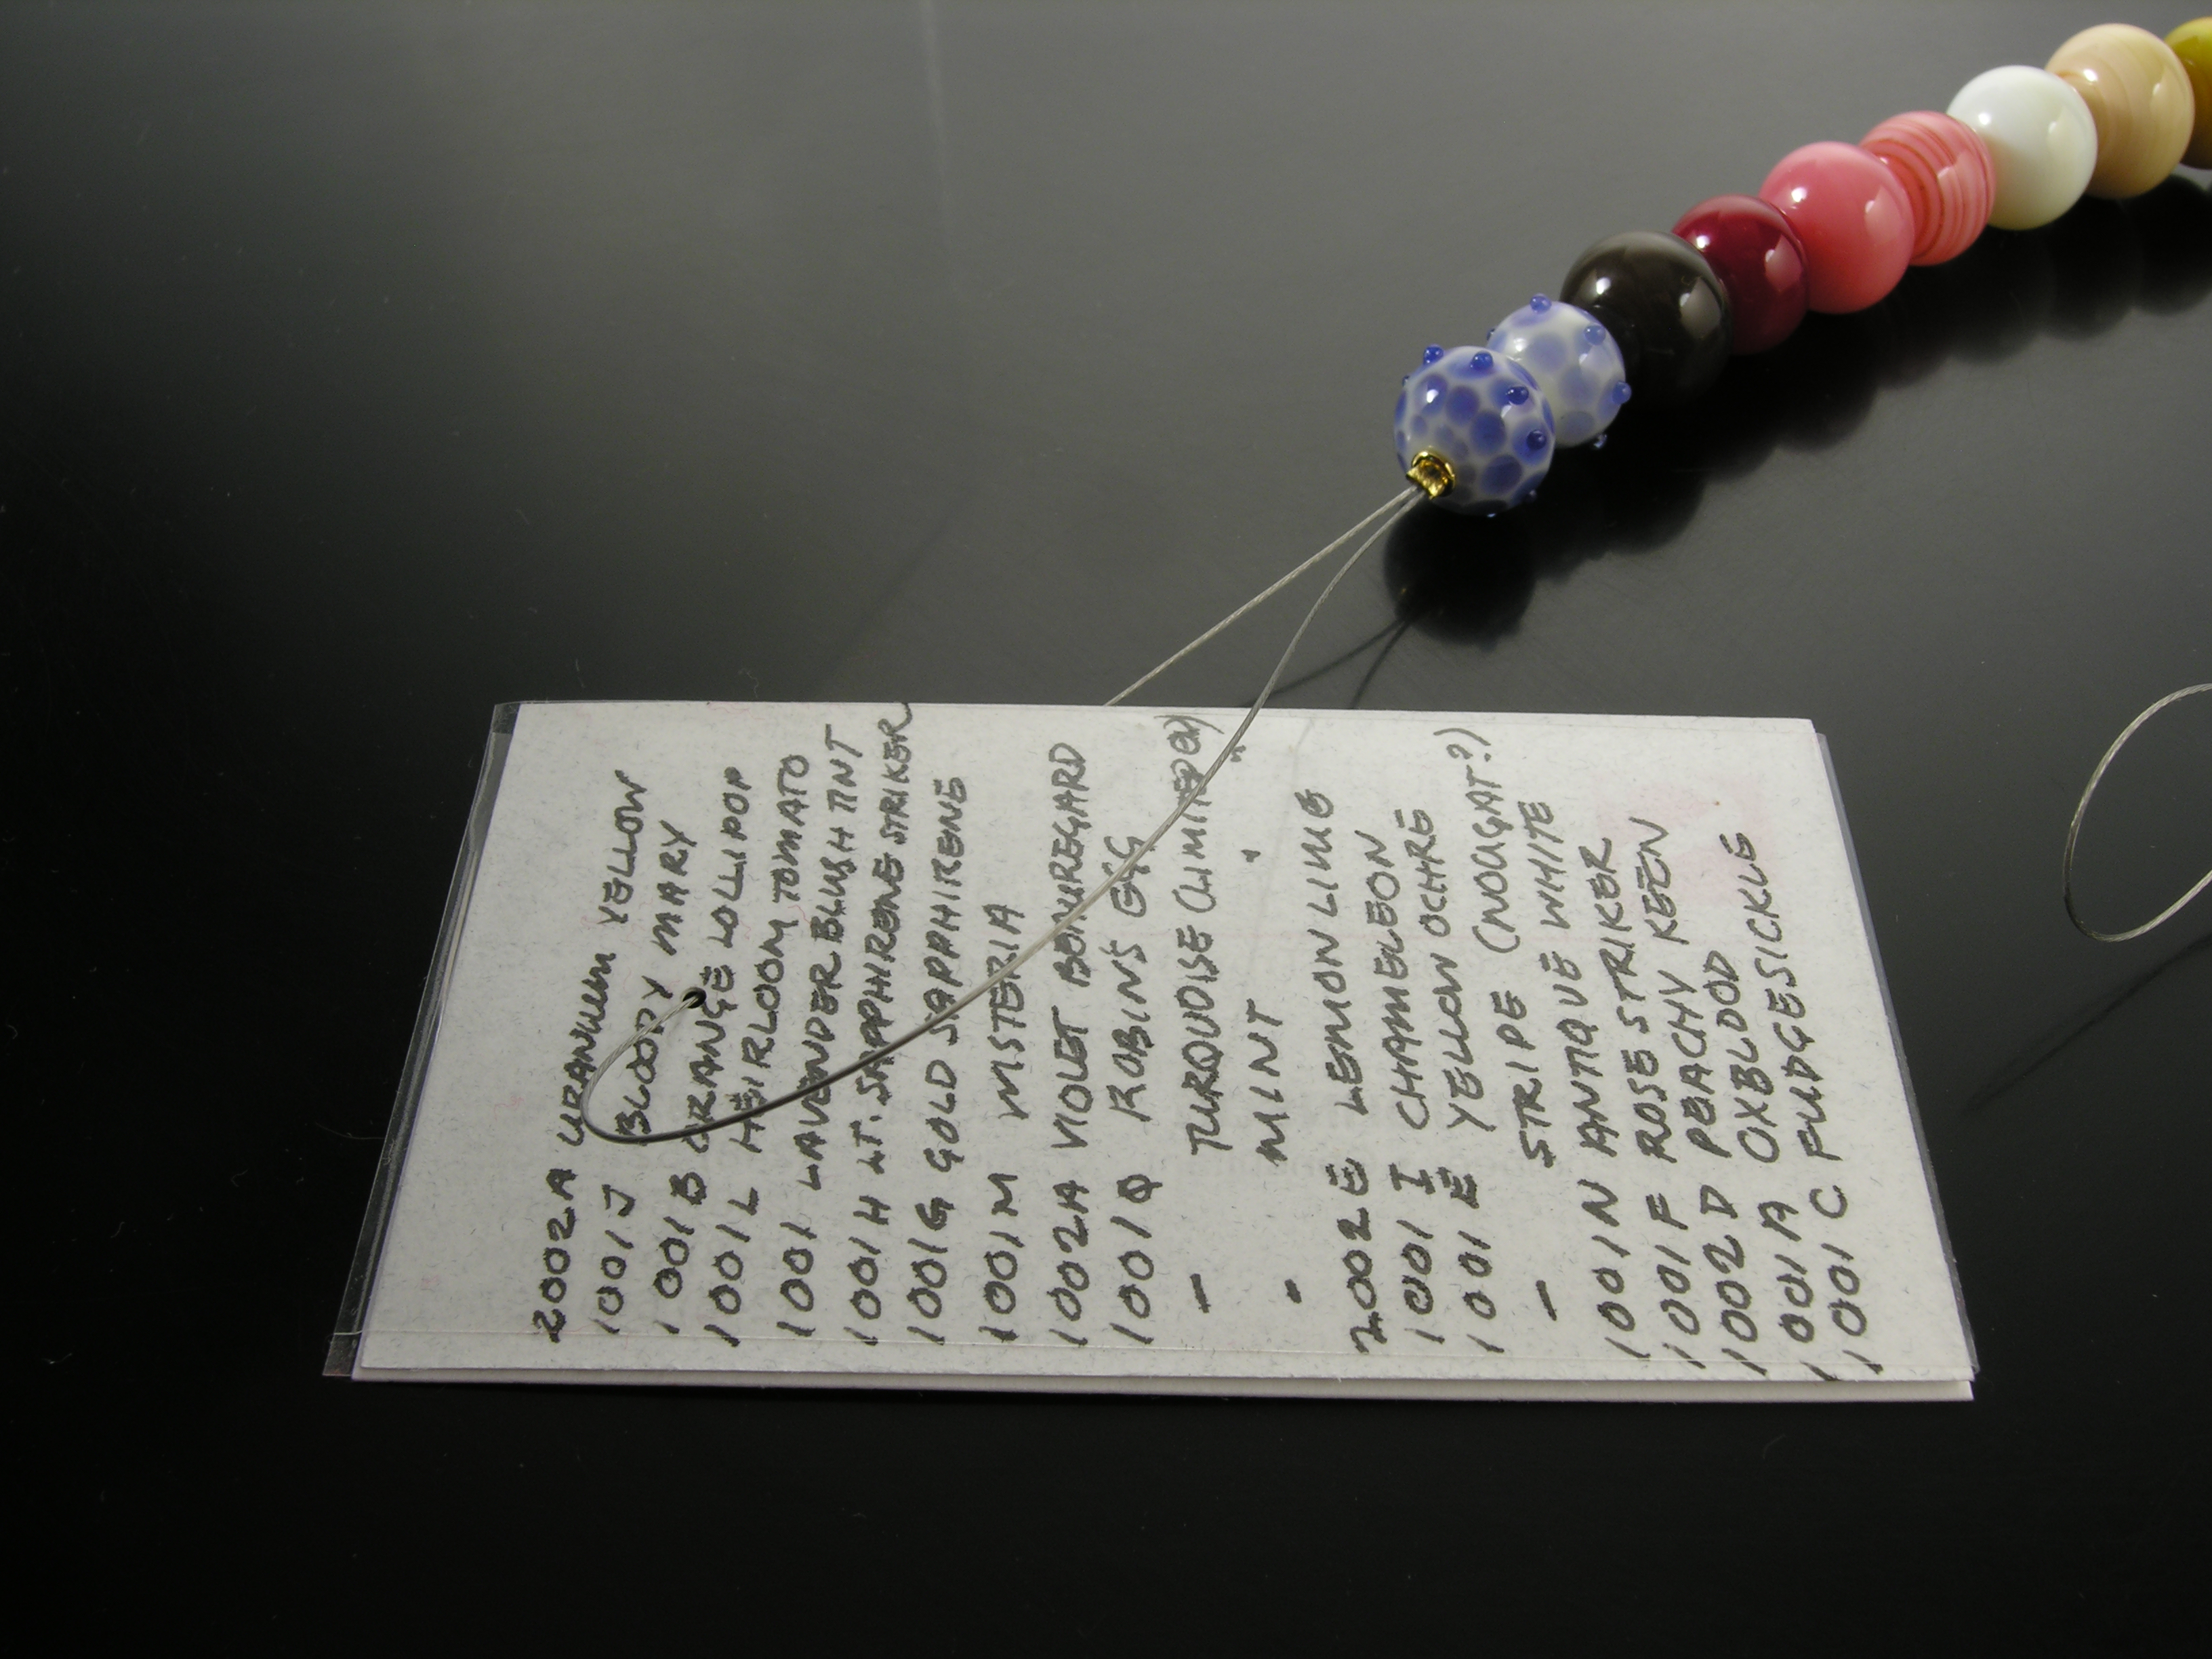 2002A URANIUM YELLOW
1001J BLOODY MARY
1001B ORANGE LOLLIPOP
1001L HEIRLOOM TOMATO
1001 LAVENDER BLUSH TINT
1001H LT. SAPPHIRENE STRIKER
1001G GOLD SAPPHIRENE
1001M WISTERIA
1002A VIOLET BEAUREGARD
1001Q ROBIN'S EGG
- TURQUOISE (LIMITED)
- MINT " "
2002E LEMON LIME
1001I CHAMELEON
1001E YELLOW OCHRE
- STRIPE (NOUGAT?)
1001N ANTIQUE WHITE
1001F ROSE STRIKER
1002D PEACHY KEEN
1001A OXBLOOD
1001C FUDGESICKLE